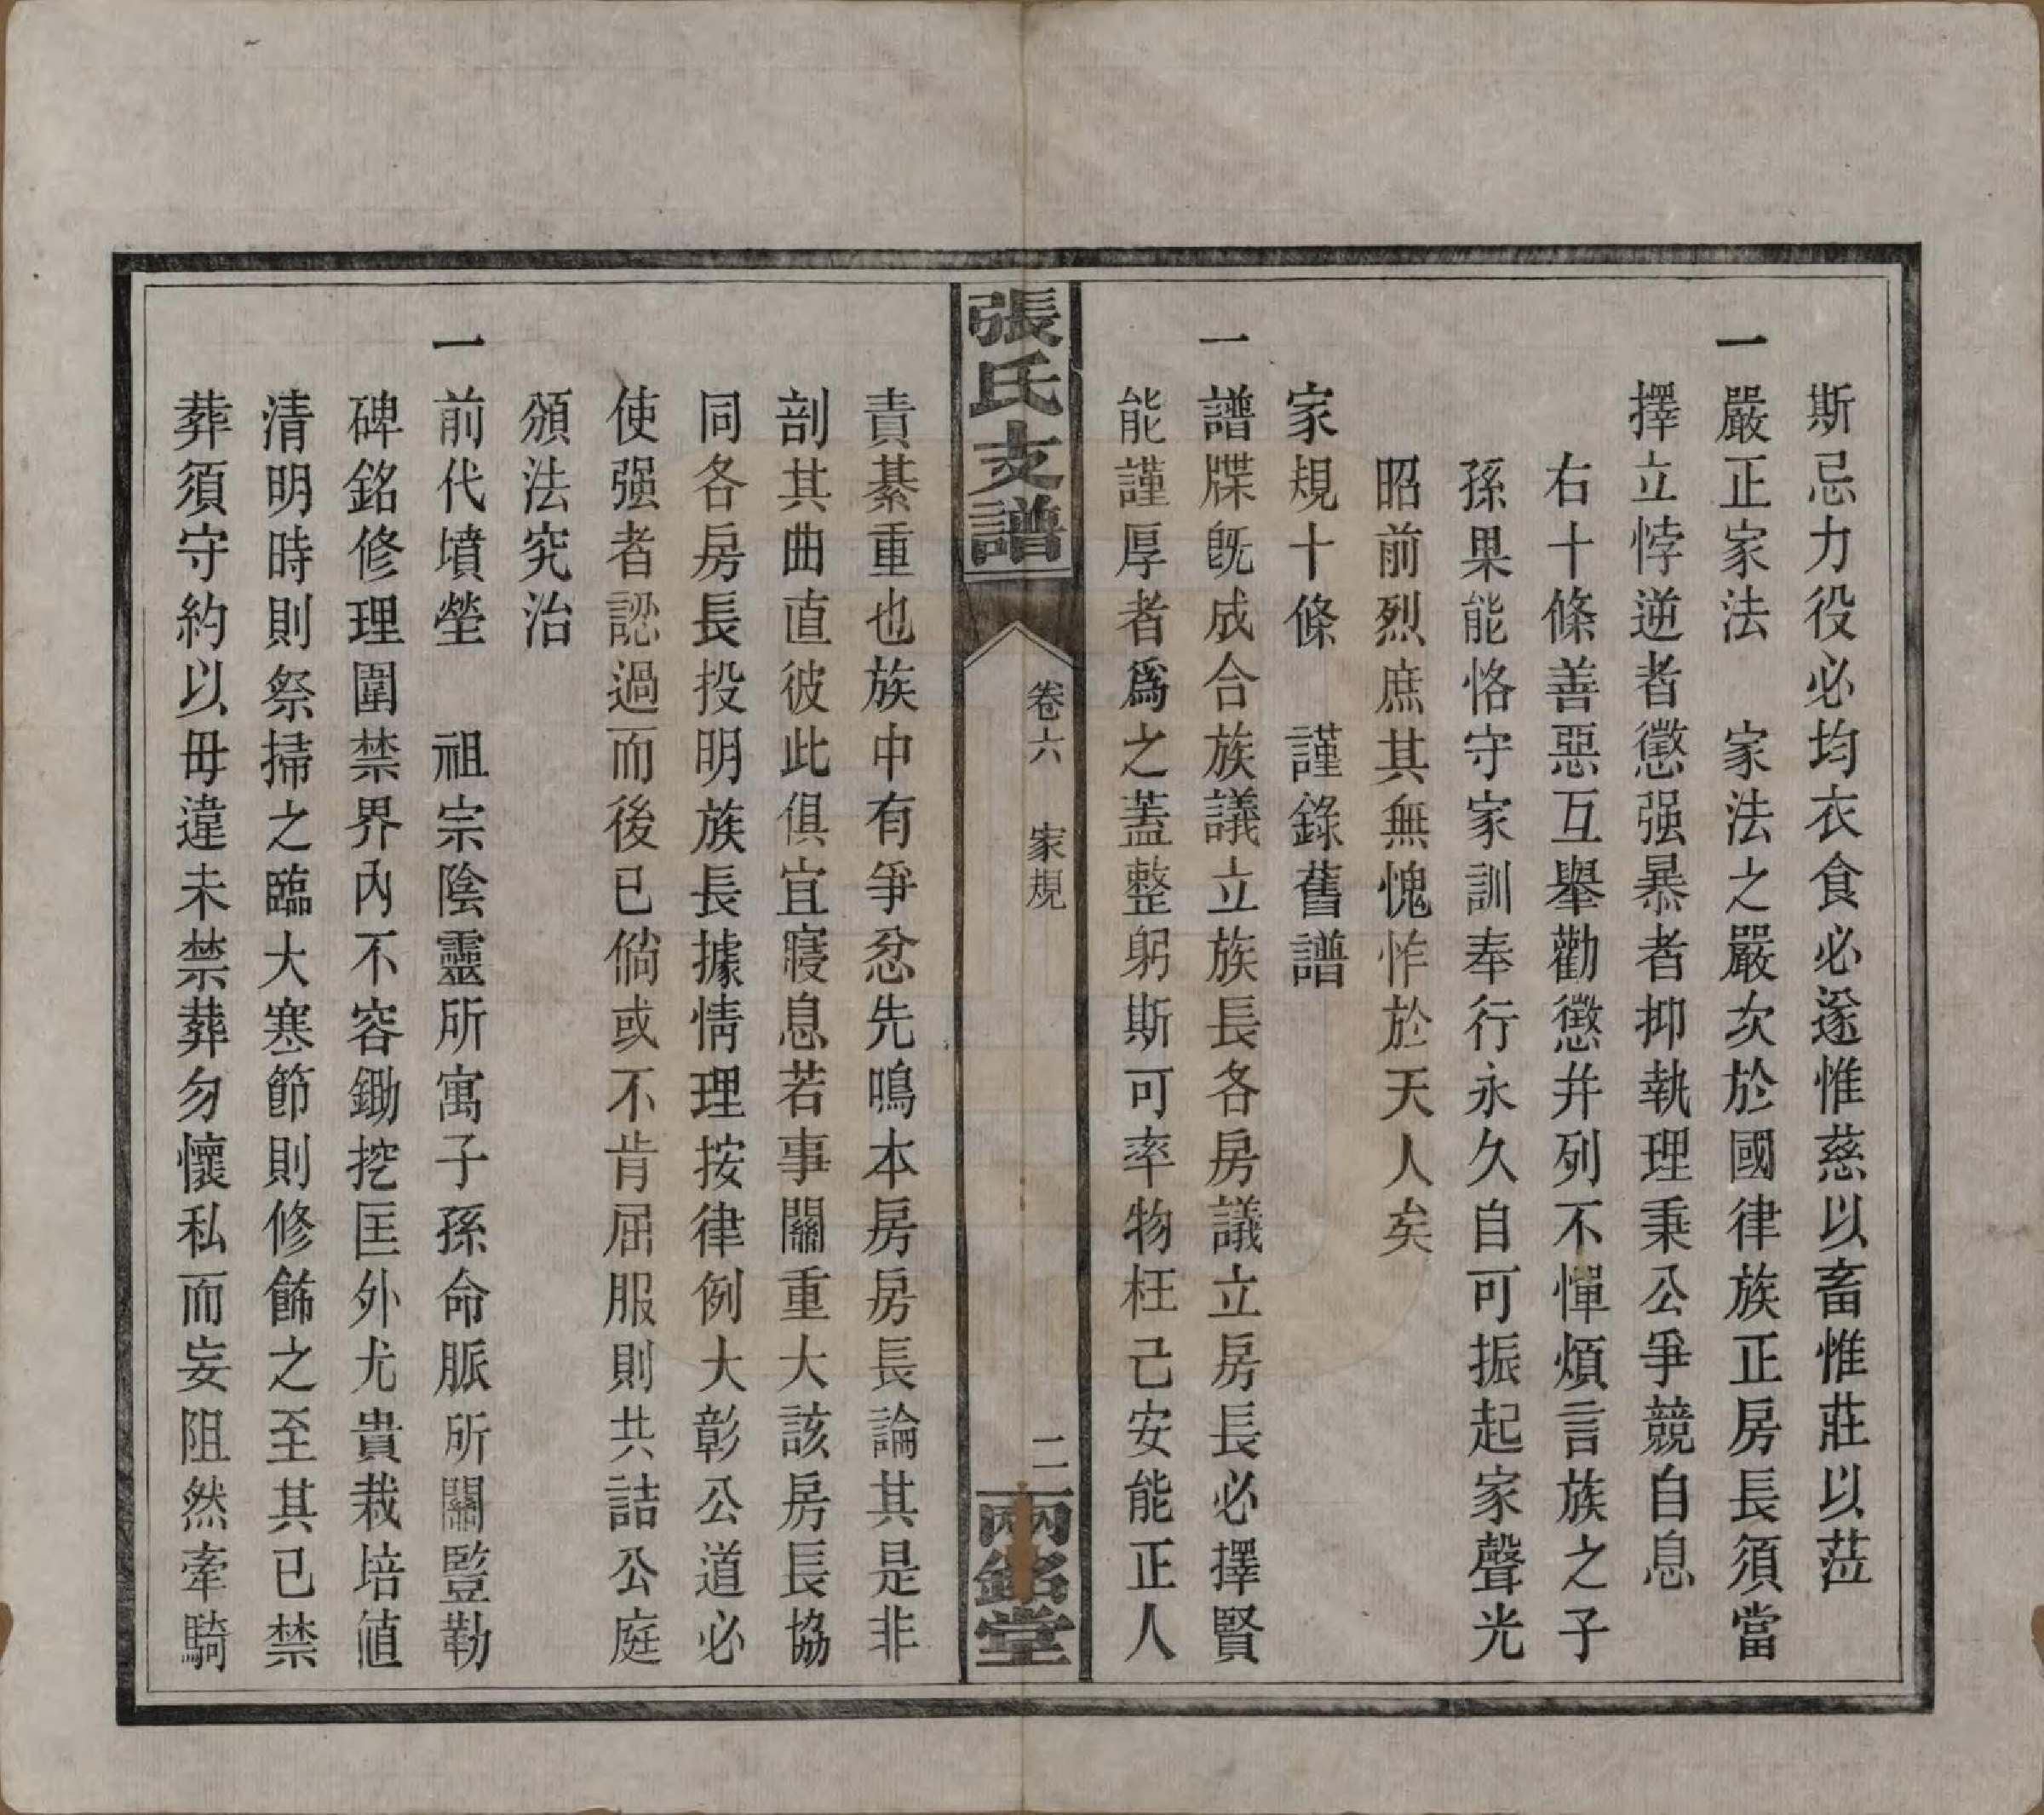 斯忌力役必均衣食必遂惟慈以畜惟莊以蒞
一嚴正家法　家法之嚴次於國律族正房長須當
擇立悖逆者懲强暴者抑執理秉公爭競自息
右十條善惡互舉勸懲幷列不憚煩言族之子
孫果能恪守家訓奉行永久自可振起家聲光
昭前烈庶其無愧怍於天人矣
家規十條　謹錄舊譜
一譜牒旣成合族議立族長各房議立房長必擇賢
能謹厚者爲之蓋整躬斯可率物枉己安能正人
張氏支譜
卷六　家規
二
兩銘堂
責綦重也族中有爭忿先鳴本房房長論其是非
剖其曲直彼此俱宜寢息若事關重大該房長協
同各房長投明族長據情理按律例大彰公道必
使强者認過而後已倘或不肯屈服則共詰公庭
頒法究治
一前代墳塋　祖宗陰靈所寓子孫命脈所關豎勒
碑銘修理圍禁界內不容鋤挖匡外尤貴栽培値
清明時則祭掃之臨大寒節則修飾之至其已禁
葬須守約以毋違未禁葬勿懷私而妄阻然牽騎